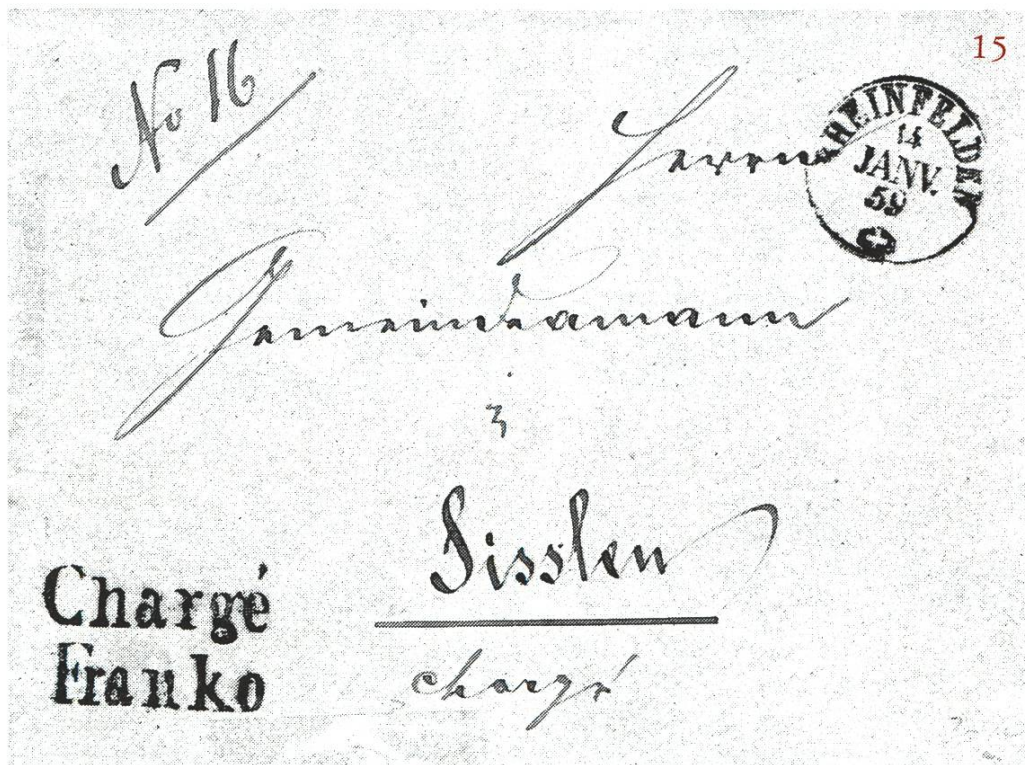 15
No 16
Herrn
RHEINFELDEN
14
JANV.
59
Gemeindeamann
Sisslen
Chargé
Franko
chargé